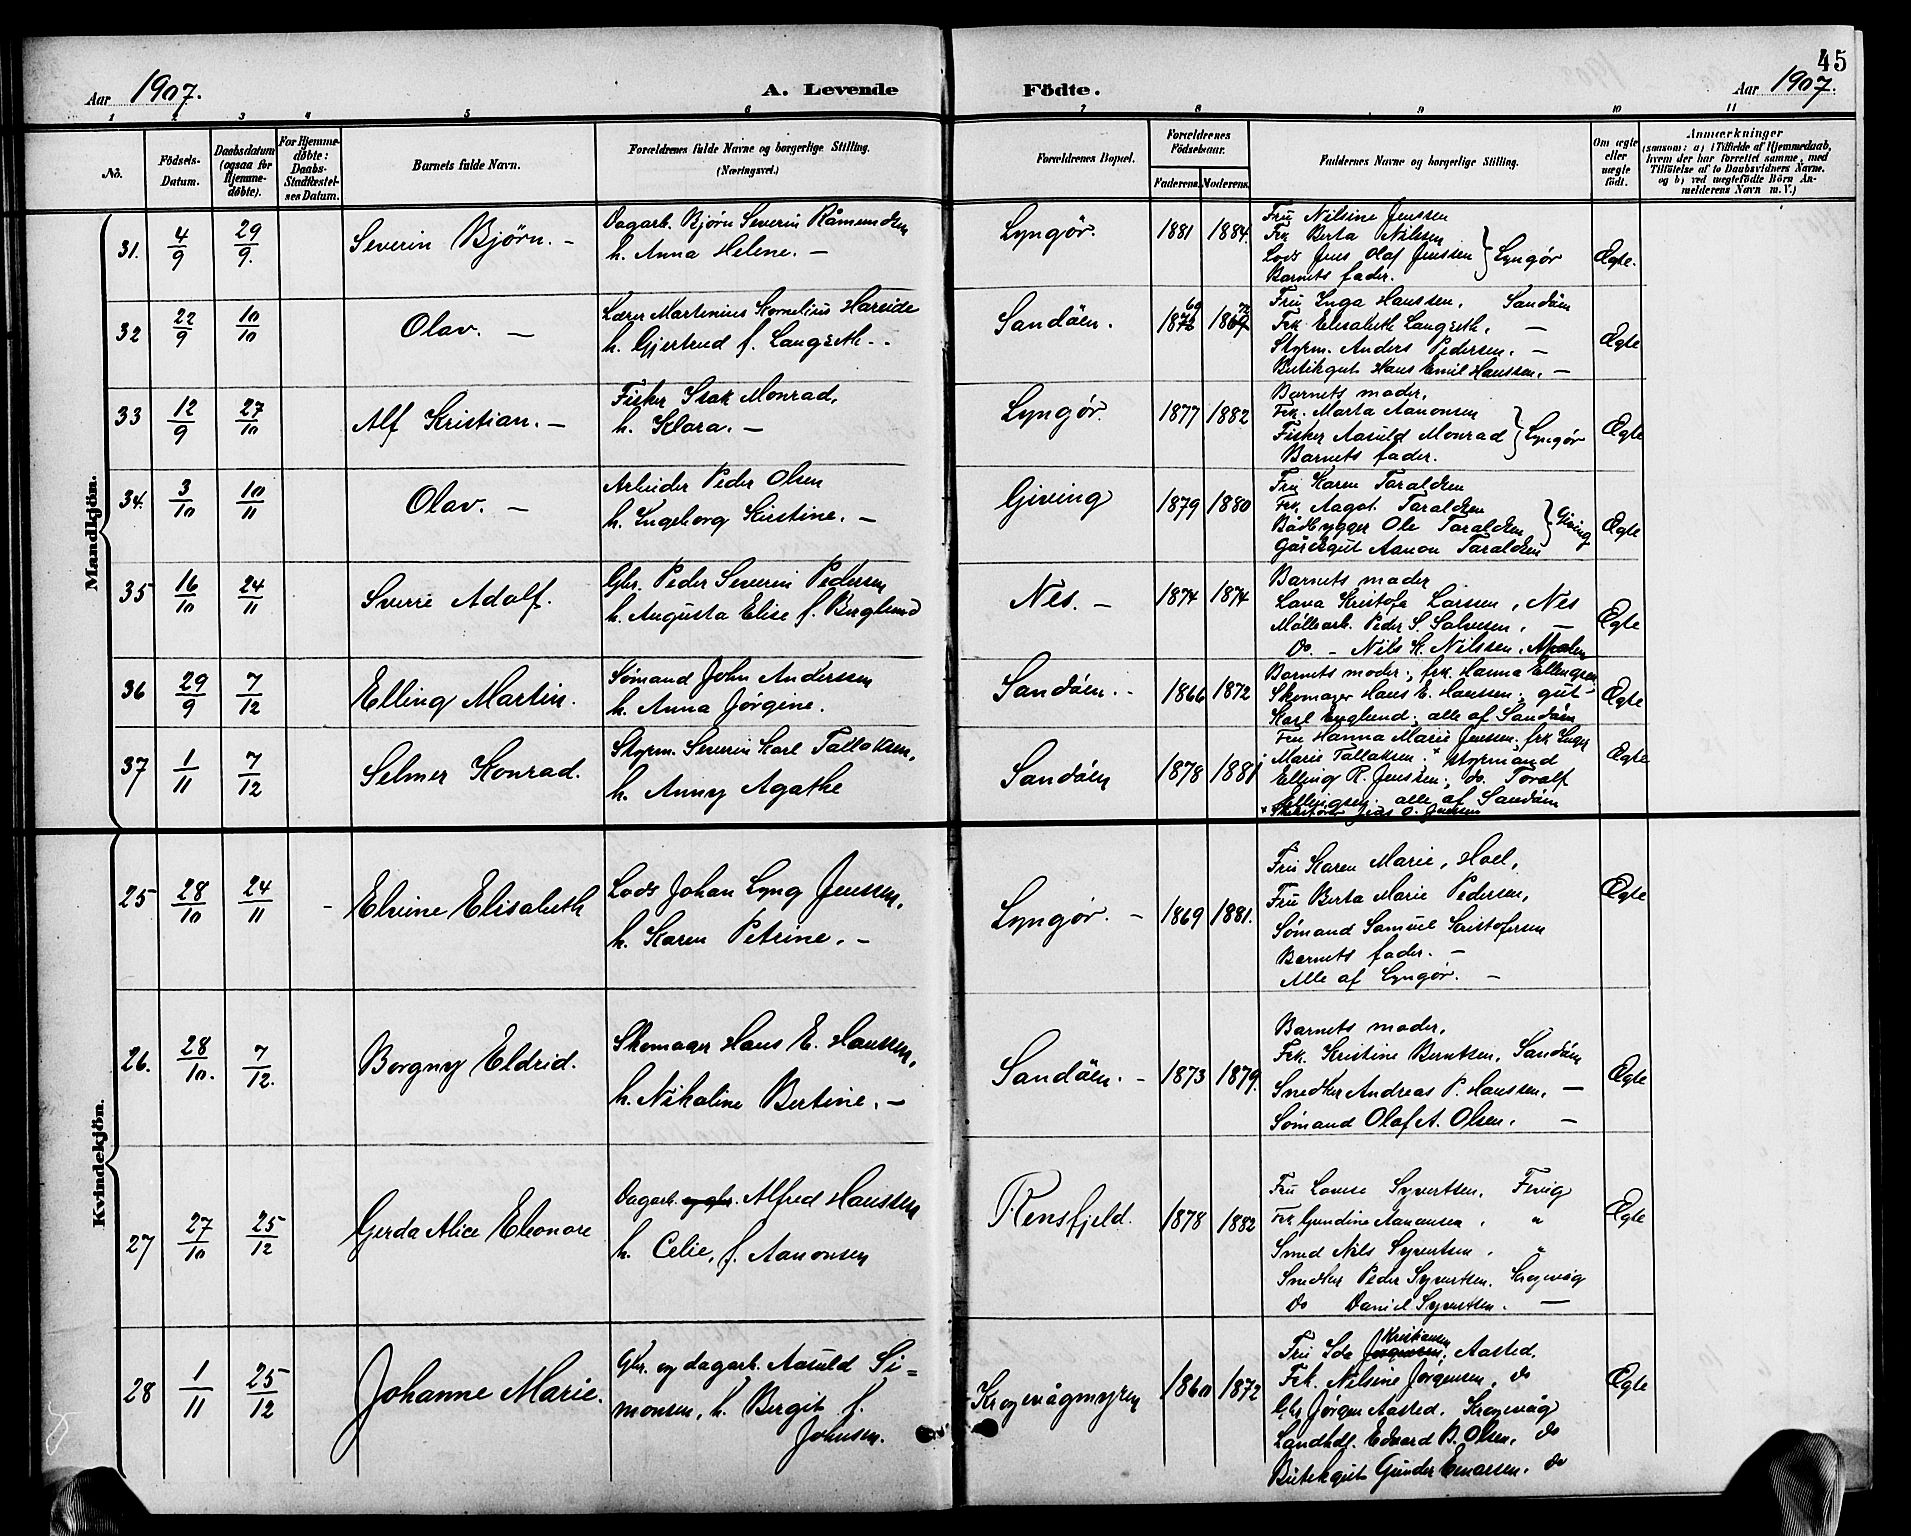 45
Aar 1907.
A. Levende
Födte.
Aar 1907.
1 2 3 4 5 6 7 8 9 10 11
No.
Födsels-
Datum.
Daabsdatum
(ogsaa for
Hjemme-
døbte).
For Hjemme-
døbte:
Daabs-
Stadfæstel-
ses Datum.
Barnets fulde Navn.
Forældrenes fulde Navne og borgerlige Stilling.
(Næringsvei.)
Forældrenes Bopæl.
Forældrenes
Födselsaar.
Faderens. Moderens.
Faddernes Navne og borgerlige Stilling.
Om ægte
eller
uægte
født.
Anmærkninger
(saasom: a) i Tilfælde af Hjemmedaab,
hvem der har forrettet samme, med
Tilföielse af to Daabsvidners Navne,
og b) ved uægtefödte Börn An-
melderens Navn m. V.)
Mandkjön.
31. 4/9 29/9. Severin Björn. –
Dagarb. Bjørn Severin Råmundsen
h. Anna Helene. –
Lyngör. 1881 1884.
Fru Nilsine Jenssen
Frk Berta Nilsen
Lods Jens Olaf Jenssen } Lyngör
Barnets fader.
Ægte.
32 22/9 10/10 Olav. –
Lærer Martinius Kornelius Hareide
h. Gjertrud f. Langseth. -
Sandöen.
Fru Inga Hanssen, Sandöen
Frk Elisabeth Langseth, –
Styrm. Anders Pedersen. –
Butikgut Hans Emil Hanssen, –
Ægte
33 12/9 27/10 Alf Kristian. –
Fisker Isak Monrad,
h. Klara. –
Lyngör. 1877 1882
Barnets moder,
Frk. Marta Aanonsen
Fisker Aasuld Monrad } Lyngör
Barnets fader.
Ægte
34. 3/10 10/11 Olav. –
Arbeider Peder Olsen
h. Ingeborg Kirstine. –
Giving 1879 1880
Fru Karen Taraldsen
Frk. Aagot Taraldsen
Bådbygger Ole Taraldsen } Giving
Gårdsgut Aanon Taraldsen
Ægte
35 16/10 24/11 Sverre Adolf.
Gbr. Peder Severin Pedersen
h. Augusta Elise f. Buglund
Nes. – 1874 1874
Barnets moder
Lava Kristofa Larsen, Nes
Møllearb. Peder S. Salvesen, –
Do. – Nils K. Nilssen,
Ægte
36 29/9 7/12 Elling Martin.
Sømand John Anderssen
h. Anna Jörgine.
Sandöen. - 1866 1872
Barnets moder; frk. Hanna Ellingsen
Skomager Hans E. Hanssen; gut
Karl Englund; alle af Sandöen
Ægte
37 1/11 7/12 Selmer Konrad.
Styrm. Severin Karl Tallaksen,
h. Anny Agathe
Sandöen 1878 1881
Fru Hanna Marie Jensen, frk Inger
Marie Tallaksen; × styrmand
Elling R. Jenssen; do. Toralf
Ellingsen. alle af Sandöen
× Jens O. Jensen
Ægte
Kvindekjön.
25 28/10 24/11 - Elvine Elisabeth
Lods Johan Lyng Jenssen,
h. Karen Petrine. –
Lyngör. – 1869 1881.
Fru Karen Marie, Hoel,
Fru Berta Marie Pedersen,
Sømand Samuel Kristofersen
Barnets fader. –
Alle af Lyngör. –
Ægte
26. 28/10. 7/12. Borgny Eldrid.
Skomager Hans E. Hanssen,
h. Nikoline Bertine. –
Sandöen. – 1873 1879.
Barnets moder,
Frk. Kristine Berntsen, Sandöen
Snedker Andreas P. Hanssen, –
Sømand Olaf A. Olsen, –
Ægte
27 27/10 25/12 Gerda Alice Eleonore
Dagarb. og gbr. Alfred Hanssen
h. Celie, f. Aanonsen
Rensfjeld. 1878 1882
Fru Lovise Syvertsen, Fevig
Frk Gundine Aanonsen, "
Smed Nils Syvertsen. "
Snedker Peder Syvertsen. Krogevåg
do Daniel Syvertsen. –
Ægte
28 1/11 25/12 Johanne Marie.
Gbr. og dagarb. Aasuld Si-
monsen, h. Bergit f.
Johnsen.
Krogevågmyren 1860 1872
Kristiansen
Fru Ida Jørgensen, Aasted.
Frk. Nilsine Jörgensen, do
Gbr Jörgen Aasted. Krogevåg
Landhdl. Edvard B. Olsen, do
Butikgut Gunder Enarsen. do
Ægte